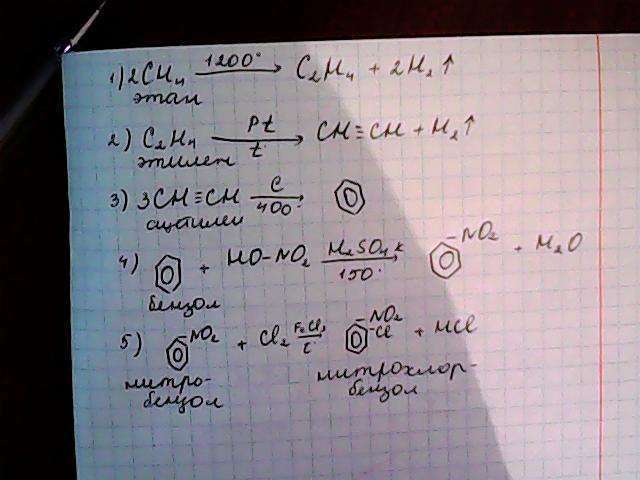 1) 2CH₄ 1200° → C₂H₄ + 2H₂ ↑
этан
2) C₂H₄ Pt t° → CH≡CH + H₂ ↑
этилен
3) 3CH≡CH C 400° →
ацетилен
4) + HO-NO₂ H₂SO₄ к 150° → -NO₂ + H₂O
бензол
5) NO₂ + Cl₂ FeCl₃ t → -NO₂ -Cl + HCl
нитро- нитрохлор-
бензол бензол